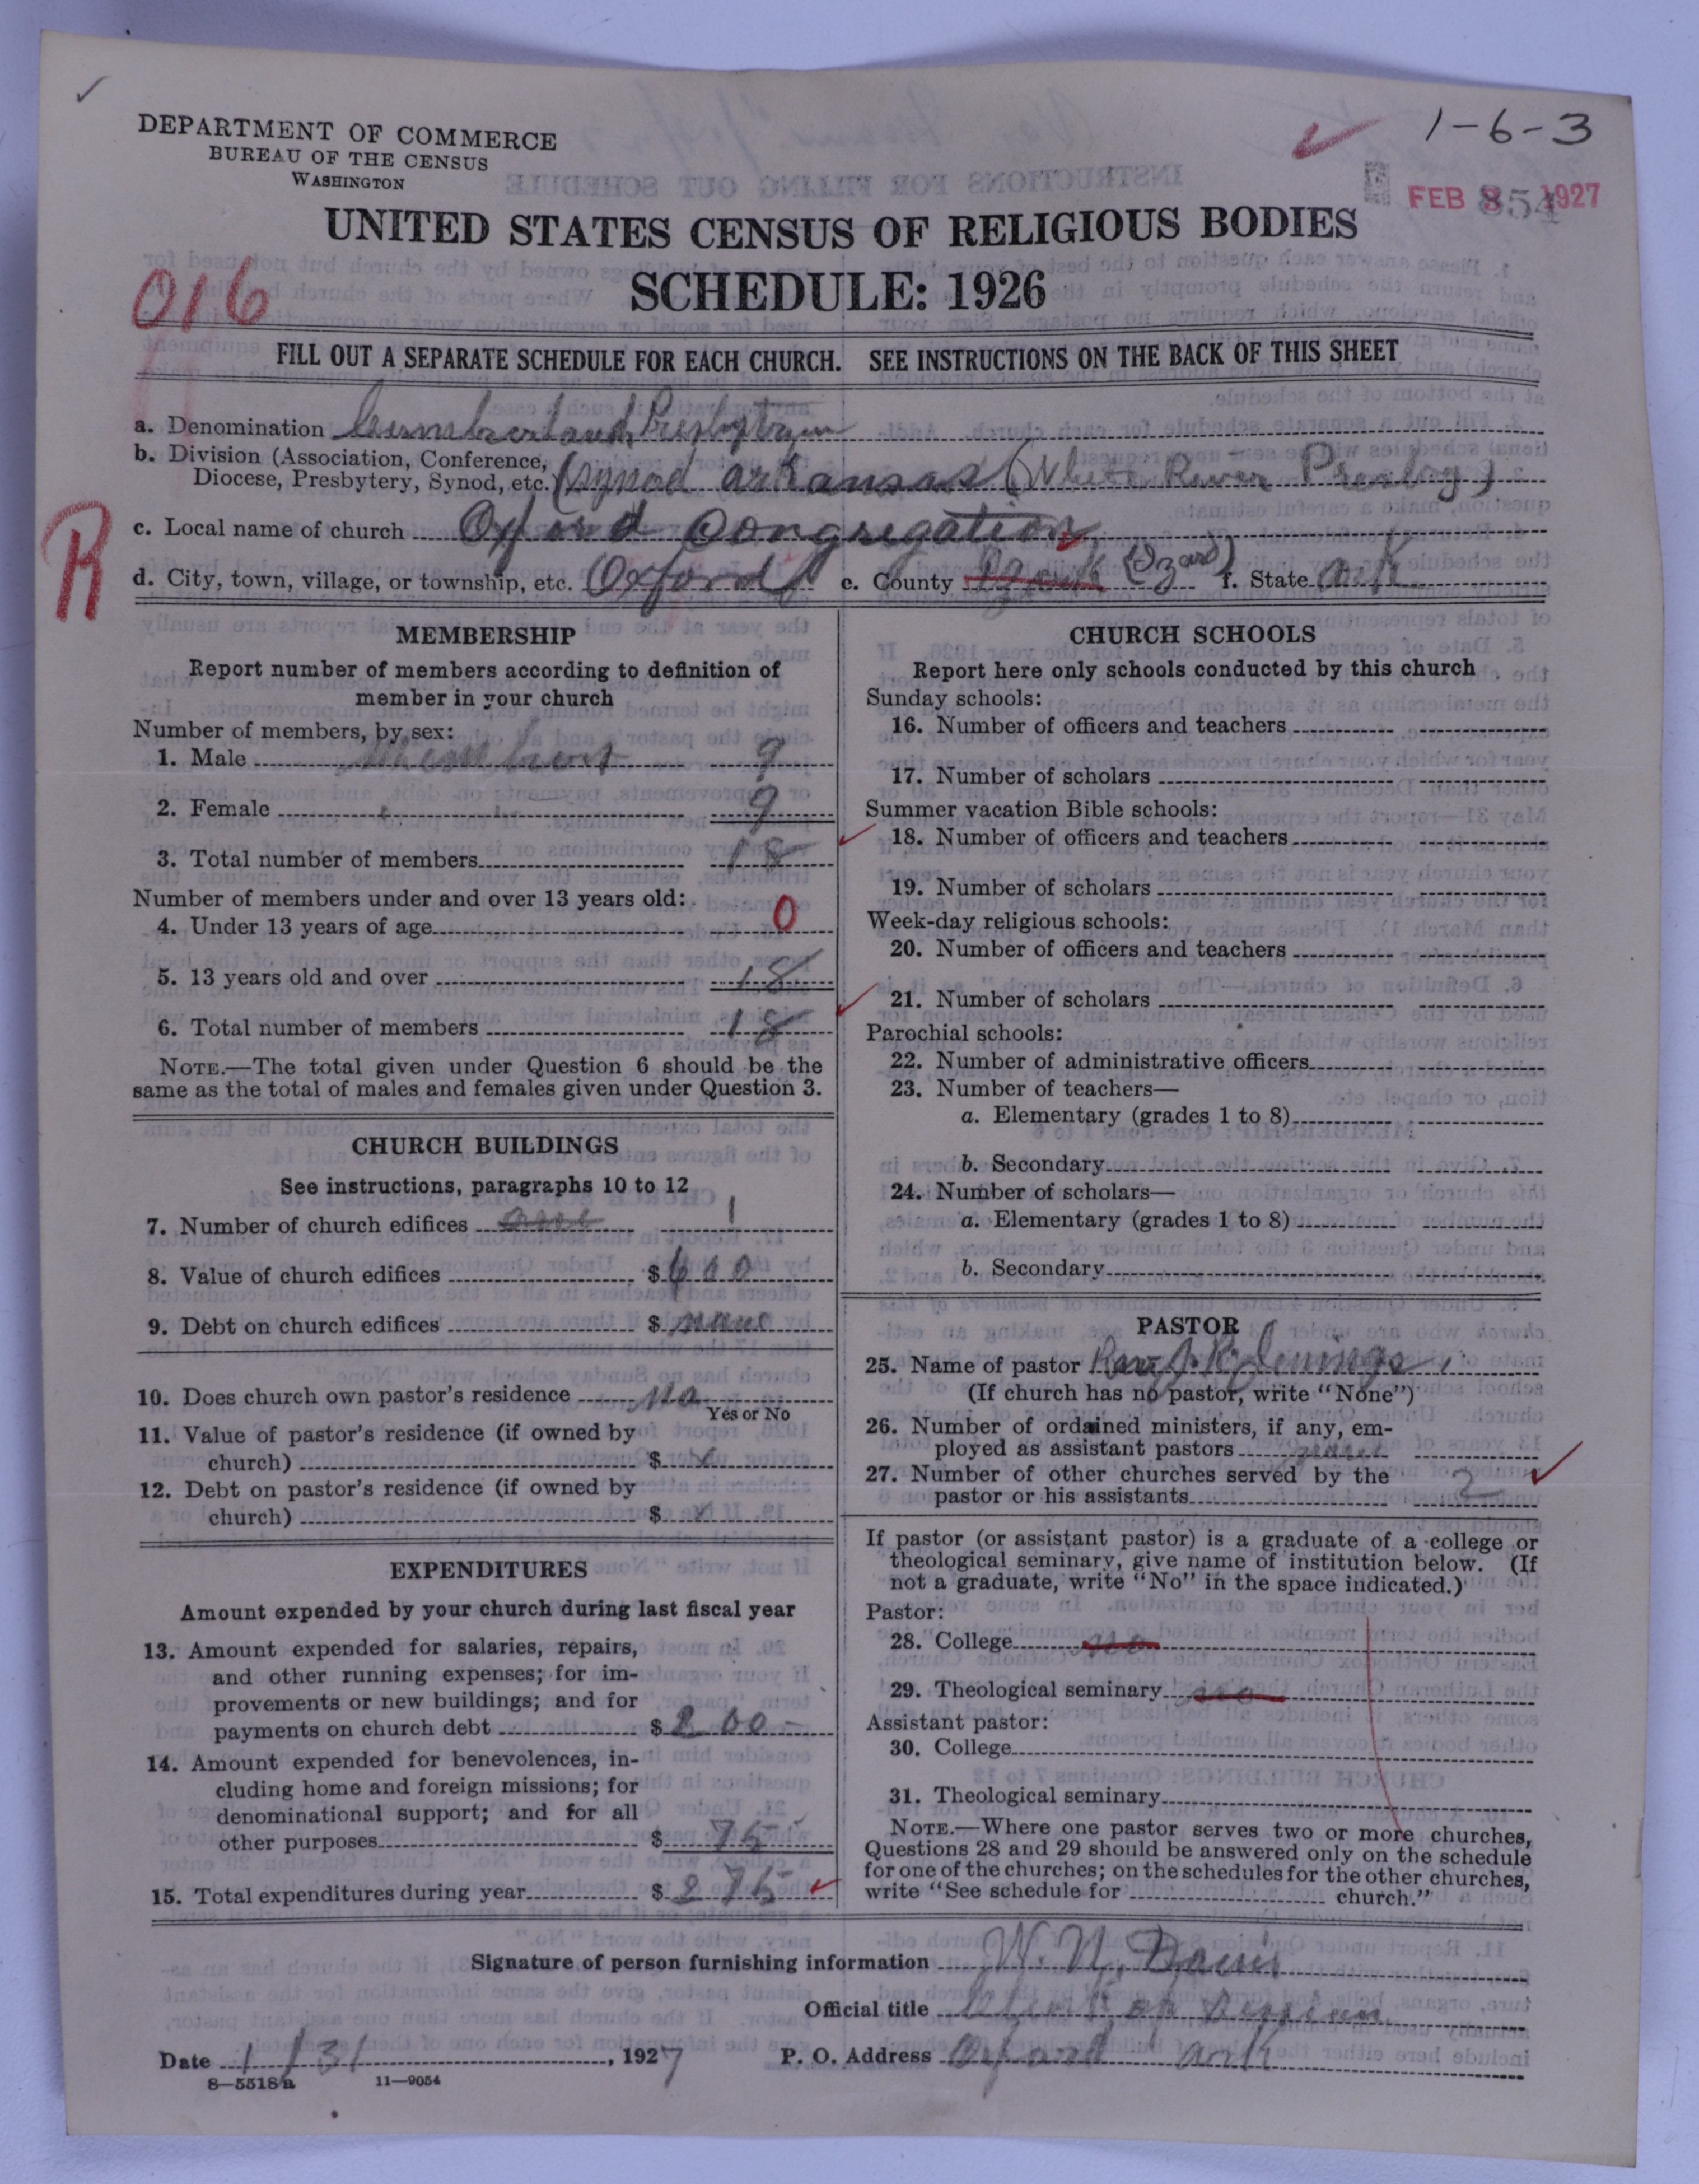 ✓
DEPARTMENT OF COMMERCE
BUREAU OF THE CENSUS
WASHINGTON
1-6-3
FEB 8 1927
854
UNITED STATES CENSUS OF RELIGIOUS BODIES
SCHEDULE: 1926
016
FILL OUT A SEPARATE SCHEDULE FOR EACH CHURCH. SEE INSTRUCTIONS ON THE BACK OF THIS SHEET
R
a. Denomination Cumberland Presbyterian
b. Division (Association, Conference,
Diocese, Presbytery, Synod, etc. (Synod arkansas (White River Presbay)
c. Local name of church Oxford Congregation
d. City, town, village, or township, etc. (Oxford) e. County (Izard) f. State Ark
MEMBERSHIP
Report number of members according to definition of
member in your church
Number of members, by sex:
1. Male 9
2. Female 9
3. Total number of members 18
Number of members under and over 13 years old:
4. Under 13 years of age 0
5. 13 years old and over 18
6. Total number of members 18
NOTE.—The total given under Question 6 should be the
same as the total of males and females given under Question 3.
CHURCH BUILDINGS
See instructions, paragraphs 10 to 12
7. Number of church edifices one 1
8. Value of church edifices $ 600
9. Debt on church edifices $ none
10. Does church own pastor's residence No
Yes or No
11. Value of pastor's residence (if owned by
church) $ x
12. Debt on pastor's residence (if owned by
church) $ x
EXPENDITURES
Amount expended by your church during last fiscal year
13. Amount expended for salaries, repairs,
and other running expenses; for im-
provements or new buildings; and for
payments on church debt $ 200-
14. Amount expended for benevolences, in-
cluding home and foreign missions; for
denominational support; and for all
other purposes $ 75
15. Total expenditures during year $ 275
CHURCH SCHOOLS
Report here only schools conducted by this church
Sunday schools:
16. Number of officers and teachers
17. Number of scholars
Summer vacation Bible schools:
18. Number of officers and teachers
19. Number of scholars
Week-day religious schools:
20. Number of officers and teachers
21. Number of scholars
Parochial schools:
22. Number of administrative officers
23. Number of teachers—
a. Elementary (grades 1 to 8)
b. Secondary
24. Number of scholars—
a. Elementary (grades 1 to 8)
b. Secondary
PASTOR
25. Name of pastor Rev J. R. Jennings
(If church has no pastor, write "None")
26. Number of ordained ministers, if any, em-
ployed as assistant pastors none
27. Number of other churches served by the
pastor or his assistants 2
If pastor (or assistant pastor) is a graduate of a college or
theological seminary, give name of institution below. (If
not a graduate, write "No" in the space indicated.)
Pastor:
28. College no
29. Theological seminary no
Assistant pastor:
30. College
31. Theological seminary
NOTE.—Where one pastor serves two or more churches,
Questions 28 and 29 should be answered only on the schedule
for one of the churches; on the schedules for the other churches,
write "See schedule for church."
Signature of person furnishing information W. N. Davis
Official title Clerk of Session
Date 1/31, 1927 P. O. Address Oxford Ark
8—5518a 11—9054